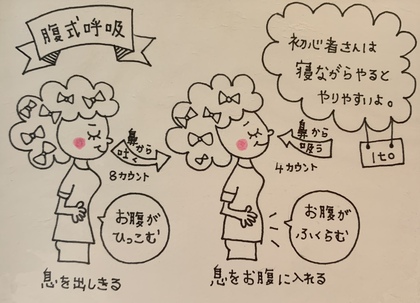 腹式呼吸
初心者さんは
寝ながらやると
やりやすいよ。
1to
鼻から
吐く
8カウント
お腹が
ひっこむ
息を出しきる
鼻から
吸う
4カウント
お腹が
ふくらむ
息をお腹に入れる